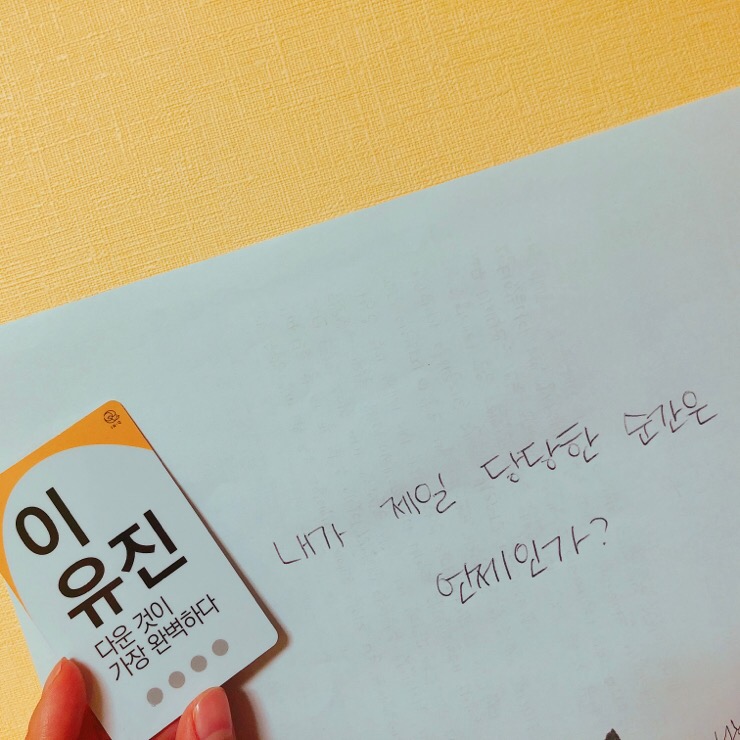 이
유진
다운 것이
가장 완벽하다
내가 제일 당당한 순간은
언제인가?